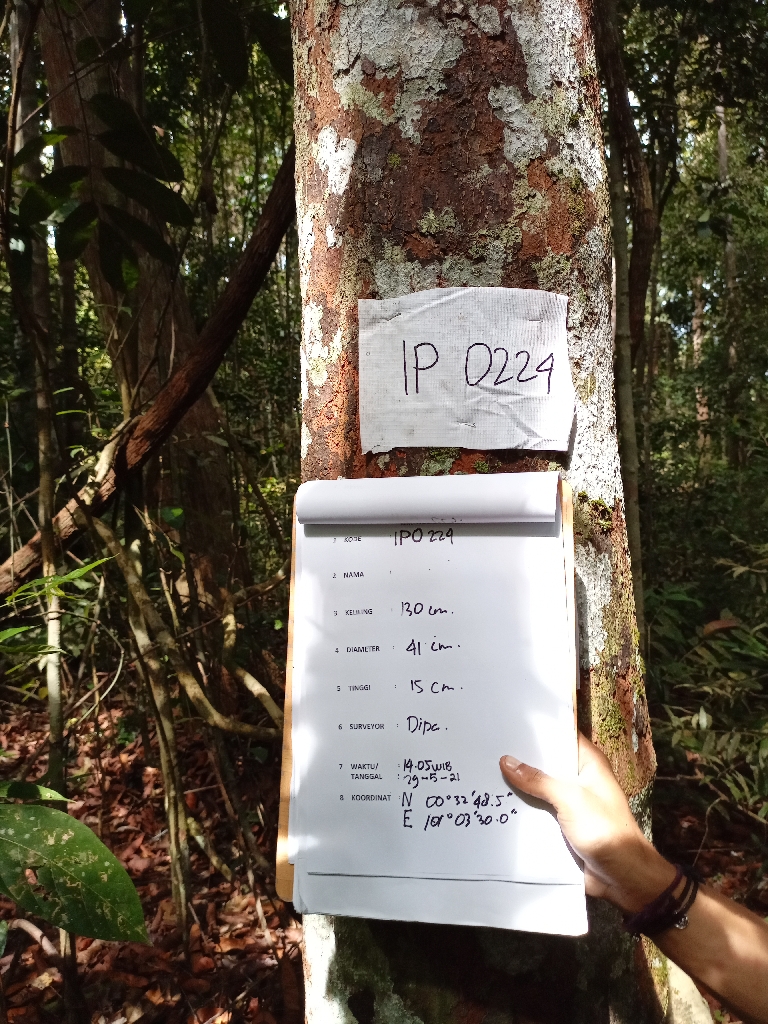 IP 0224
1 KODE IP0224
2 NAMA :
3 KELILING : 130 cm.
4 DIAMETER : 41 cm.
5 TINGGI : 15 cm.
6 SURVEYOR : Dipa.
7 WAKTU/ : 14.05 WIB
TANGGAL : 29-5-21
8 KOORDINAT : N 00°32'48.5"
E 101°03'30.0"